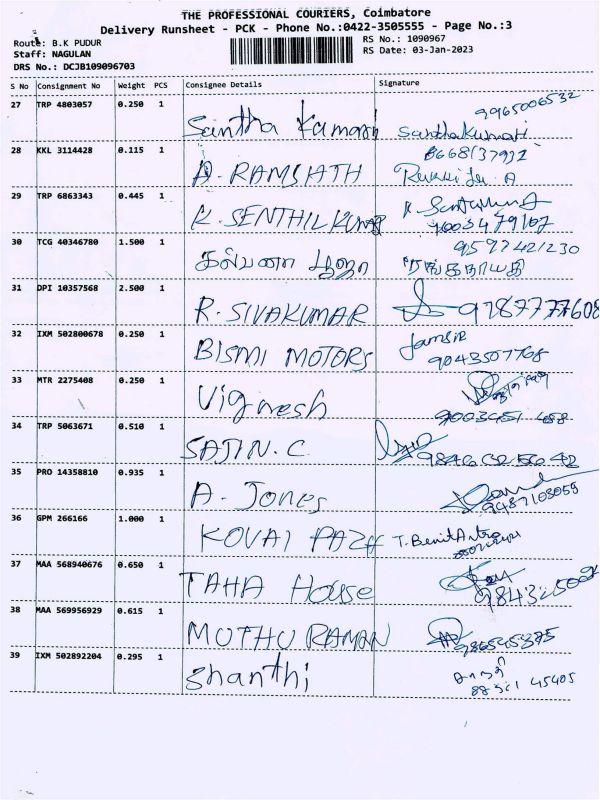 THE PROFESSIONAL COURIERS, Coimbatore
Delivery Runsheet - PCK - Phone No.:0422-3505555 - Page No.:3
Route: B.K PUDUR
RS No.: 1090967
Staff: NAGULAN
RS Date: 03-Jan-2023
DRS No.: DCJB109096703
S No Consignment No Weight PCS Consignee Details Signature
27 TRP 4803057 0.250 1 Santha Kamarh 9965006532
Santhakumari
28 KKL 3114428 0.115 1 A. RAMSHATH 8668137932
29 TRP 6863343 0.445 1 K. SENTHIL KUMAR
9003479107
30 TCG 40346780 1.500 1 கல்பனா பூஜா 9597421230
31 DPI 10357568 2.500 1 R. SIVAKUMAR 9787777608
32 IXM 502800678 0.250 1 BISMI MOTORS Jamsir
9043507768
33 MTR 2275408 0.250 1 Vignesh
34 TRP 5063671 0.510 1 SAJIN. C
9846325642
35 PRO 14358810 0.935 1 A. Jones
9487103055
36 GPM 266166 1.000 1 KOVAI PAZH
37 MAA 568940676 0.650 1 TAHA House
38 MAA 569956929 0.615 1 MUTHU RAMAN
39 IXM 502892204 0.295 1 Shanthi
சாந்தி